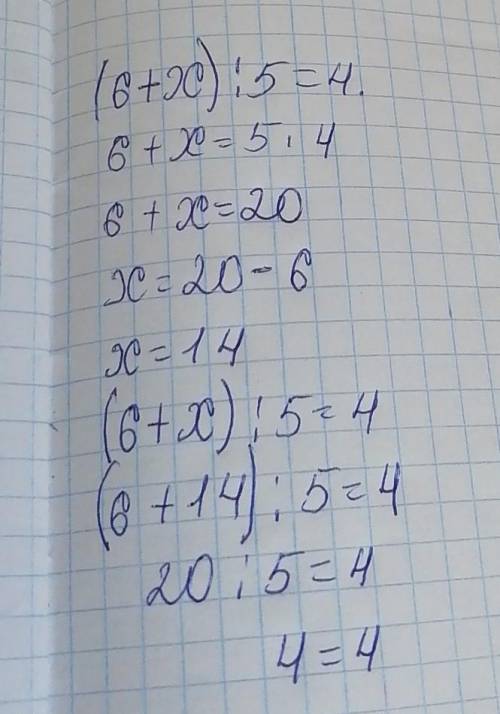 (6+x):5=4.
6+x=5·4
6+x=20
x=20-6
x=14
(6+x):5=4
(6+14):5=4
20:5=4
4=4